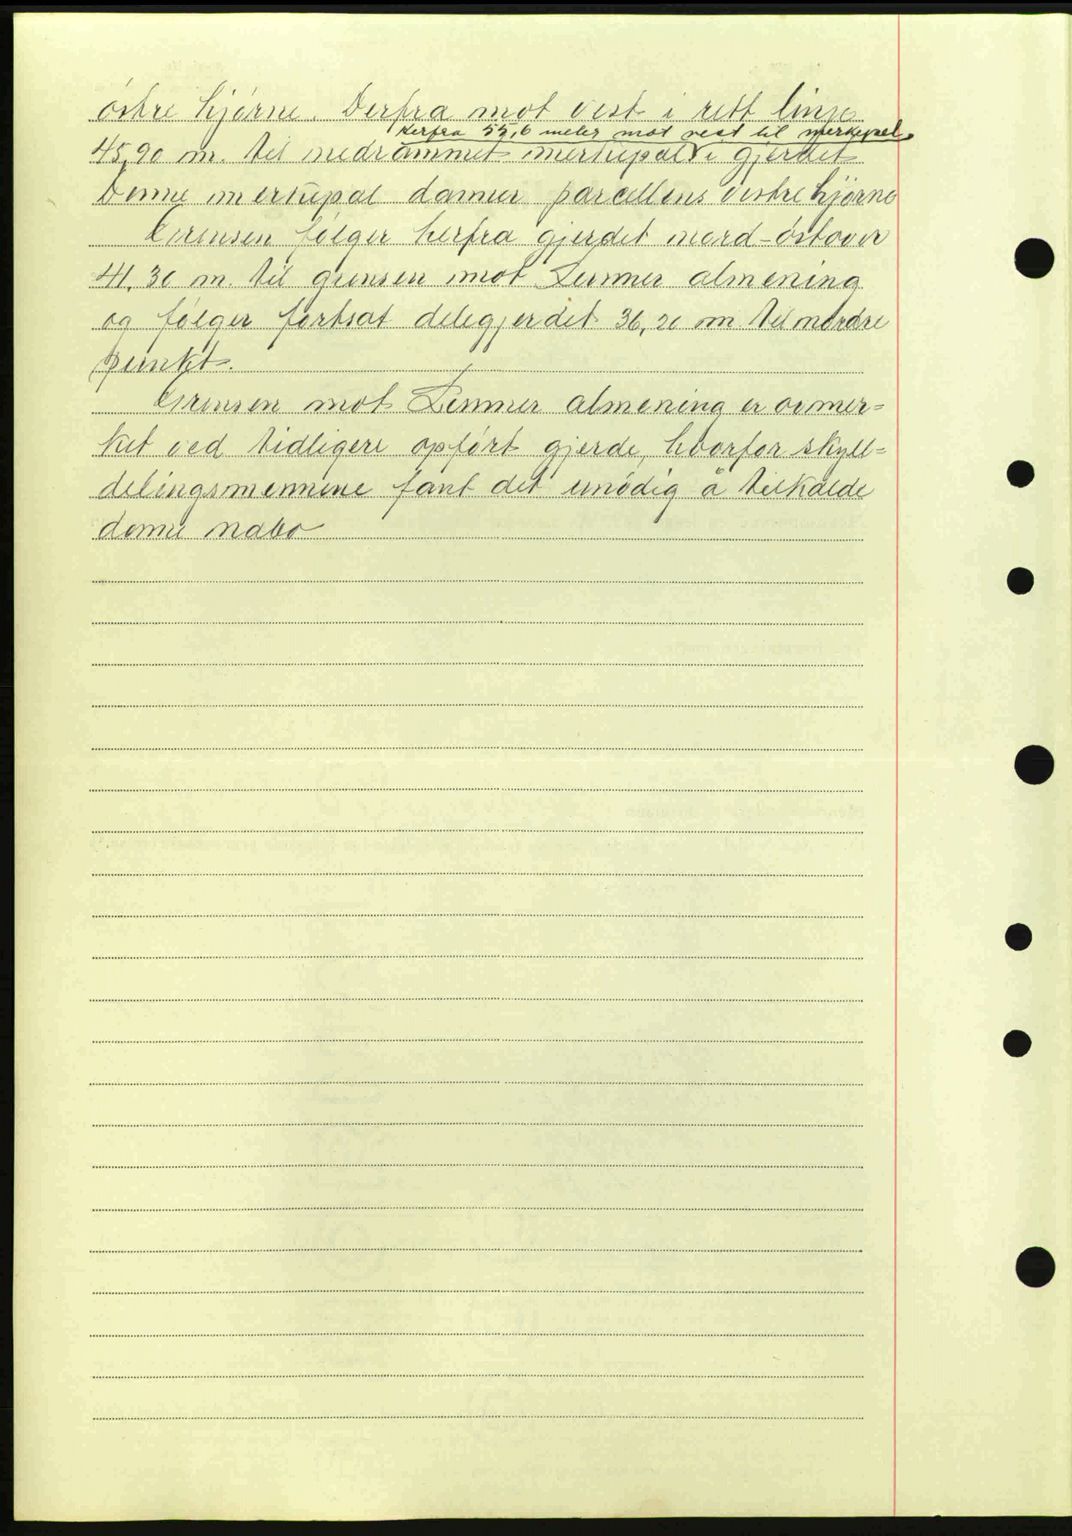 östre hjörne. Derfra mot vest i rett linje
derfra 55,6 meter mot vest til merkepæl
45,90 m. til nedrammet merkepæl i gjerdet
Denne merkepæl danner parcellens vestre hjörne
Grensen fölger herfra gjerdet nord-östover
41,30 m. til grensen mot Lunner almening
og fölger fortsat delegjerdet 36,20 m til nordre
punkt.
Grensen mot Lunner almening er avmer=
ket ved tidligere opfört gjerde, hvorfor skyll=
delingsmennene fant det unödig å tilkalde
denne nabo